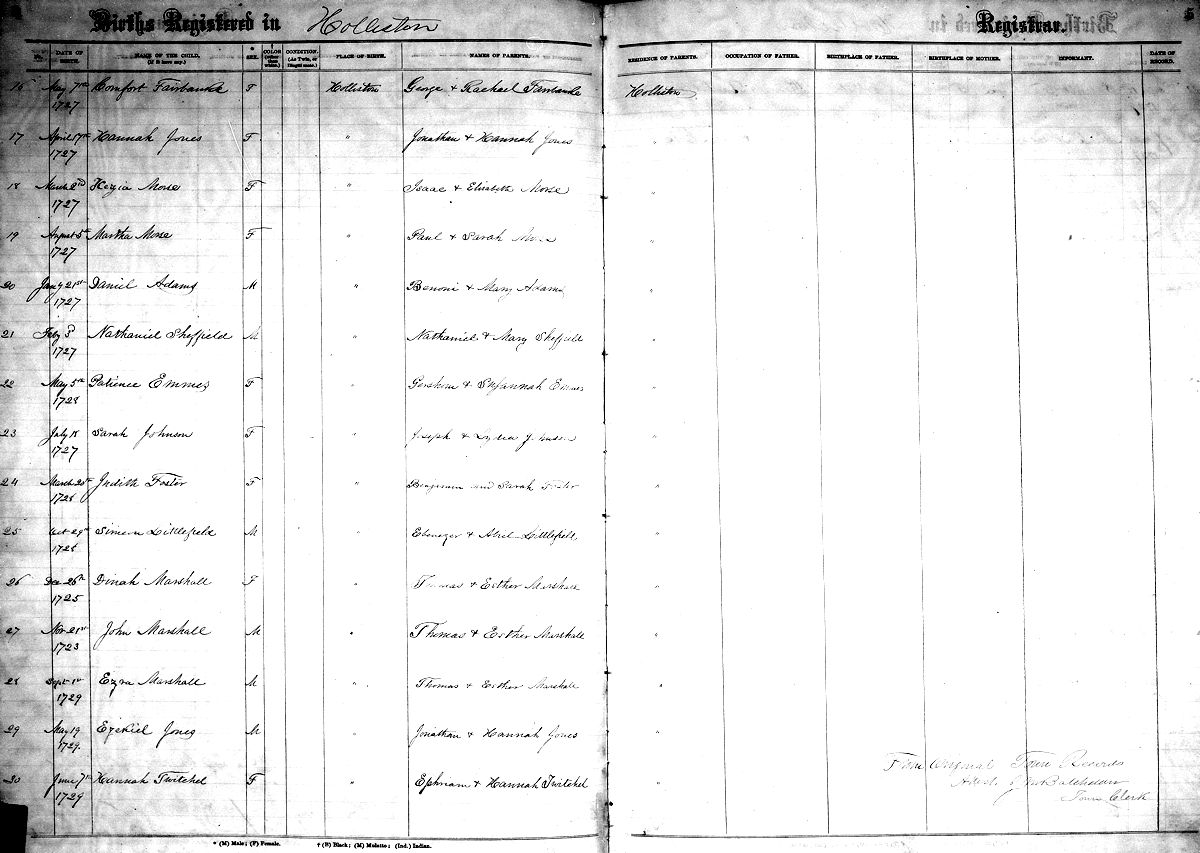 Births Registered in Holliston Registrar. 5
No. DATE OF BIRTH. NAME OF THE CHILD. (If it have any.) * SEX. COLOR (other than white.) CONDITION. (As Twin, or Illegitimate.) PLACE OF BIRTH. NAMES OF PARENTS. RESIDENCE OF PARENTS. OCCUPATION OF FATHER. BIRTHPLACE OF FATHER. BIRTHPLACE OF MOTHER. INFORMANT. DATE OF RECORD.
16 May 7th Comfort Fairbanks F Holliston George & Rachael Fairbanks Holliston
1727
17 April 17th Hannah Jones F " Jonathan & Hannah Jones "
1727
18 March 2nd Kezia Morse F " Isaac & Elisabeth Morse "
1727
19 August 5th Martha Morse F " Paul & Sarah "
1727
20 Jany 21st Daniel Adams M " Benoni & Mary Adams "
1727
21 Feby 3d Nathaniel Sheffield M " Nathaniel & Mary Sheffield "
1727
22 May 5th Patience Emmes F " Gershom & Susannah Emmes "
1728
23 July Sarah Johnson F " Joseph & Lydia Johnson "
1727
24 March Judith Foster F " Benjamin and Sarah Foster "
1728
25 Oct 29th Simeon Littlefield M " Ebenezer & Littlefield "
1728
26 Dec 26th Dinah Marshall F " Thomas & Esther Marshall "
1725
27 Nov 21st John Marshall M " Thomas & Esther Marshall "
1723
28 Sept 1st Ezra Marshall M " Thomas & Esther Marshall "
1729
29 May 19 Ezekiel Jones M " Jonathan & Hannah Jones "
1729.
30 June 7th Hannah Twitchel F " Ephriam & Hannah Twitchel "
1729
From Original Town Records
Attest.
Town Clerk
* (M) Male; (F) Female. † (B) Black; (M) Mulatto; (Ind.) Indian.